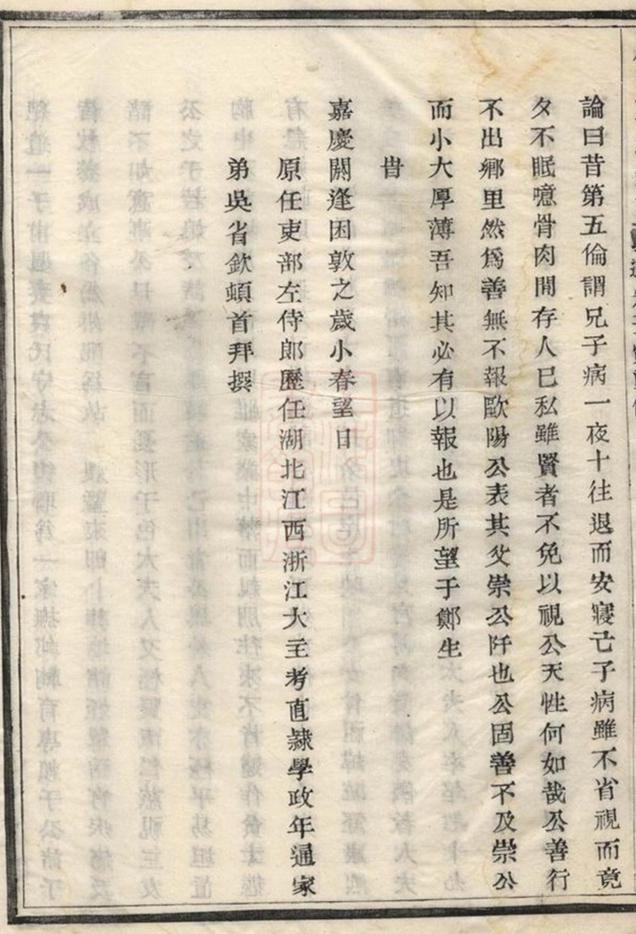 論曰昔第五倫謂兄子病一夜十往退而安寢己子病雖不省視而竟
夕不眠噫骨肉閒存人己私雖賢者不免以視公天性何如哉公善行
不出鄉里然爲善無不報歐陽公表其父崇公阡也公固善不及崇公
而小大厚薄吾知其必有以報也是所望于鄭生
旹
嘉慶閼逢困敦之歲小春望日
原任吏部左侍郎歷任湖北江西浙江大主考直隷學政年通家
弟吳省欽頓首拜撰